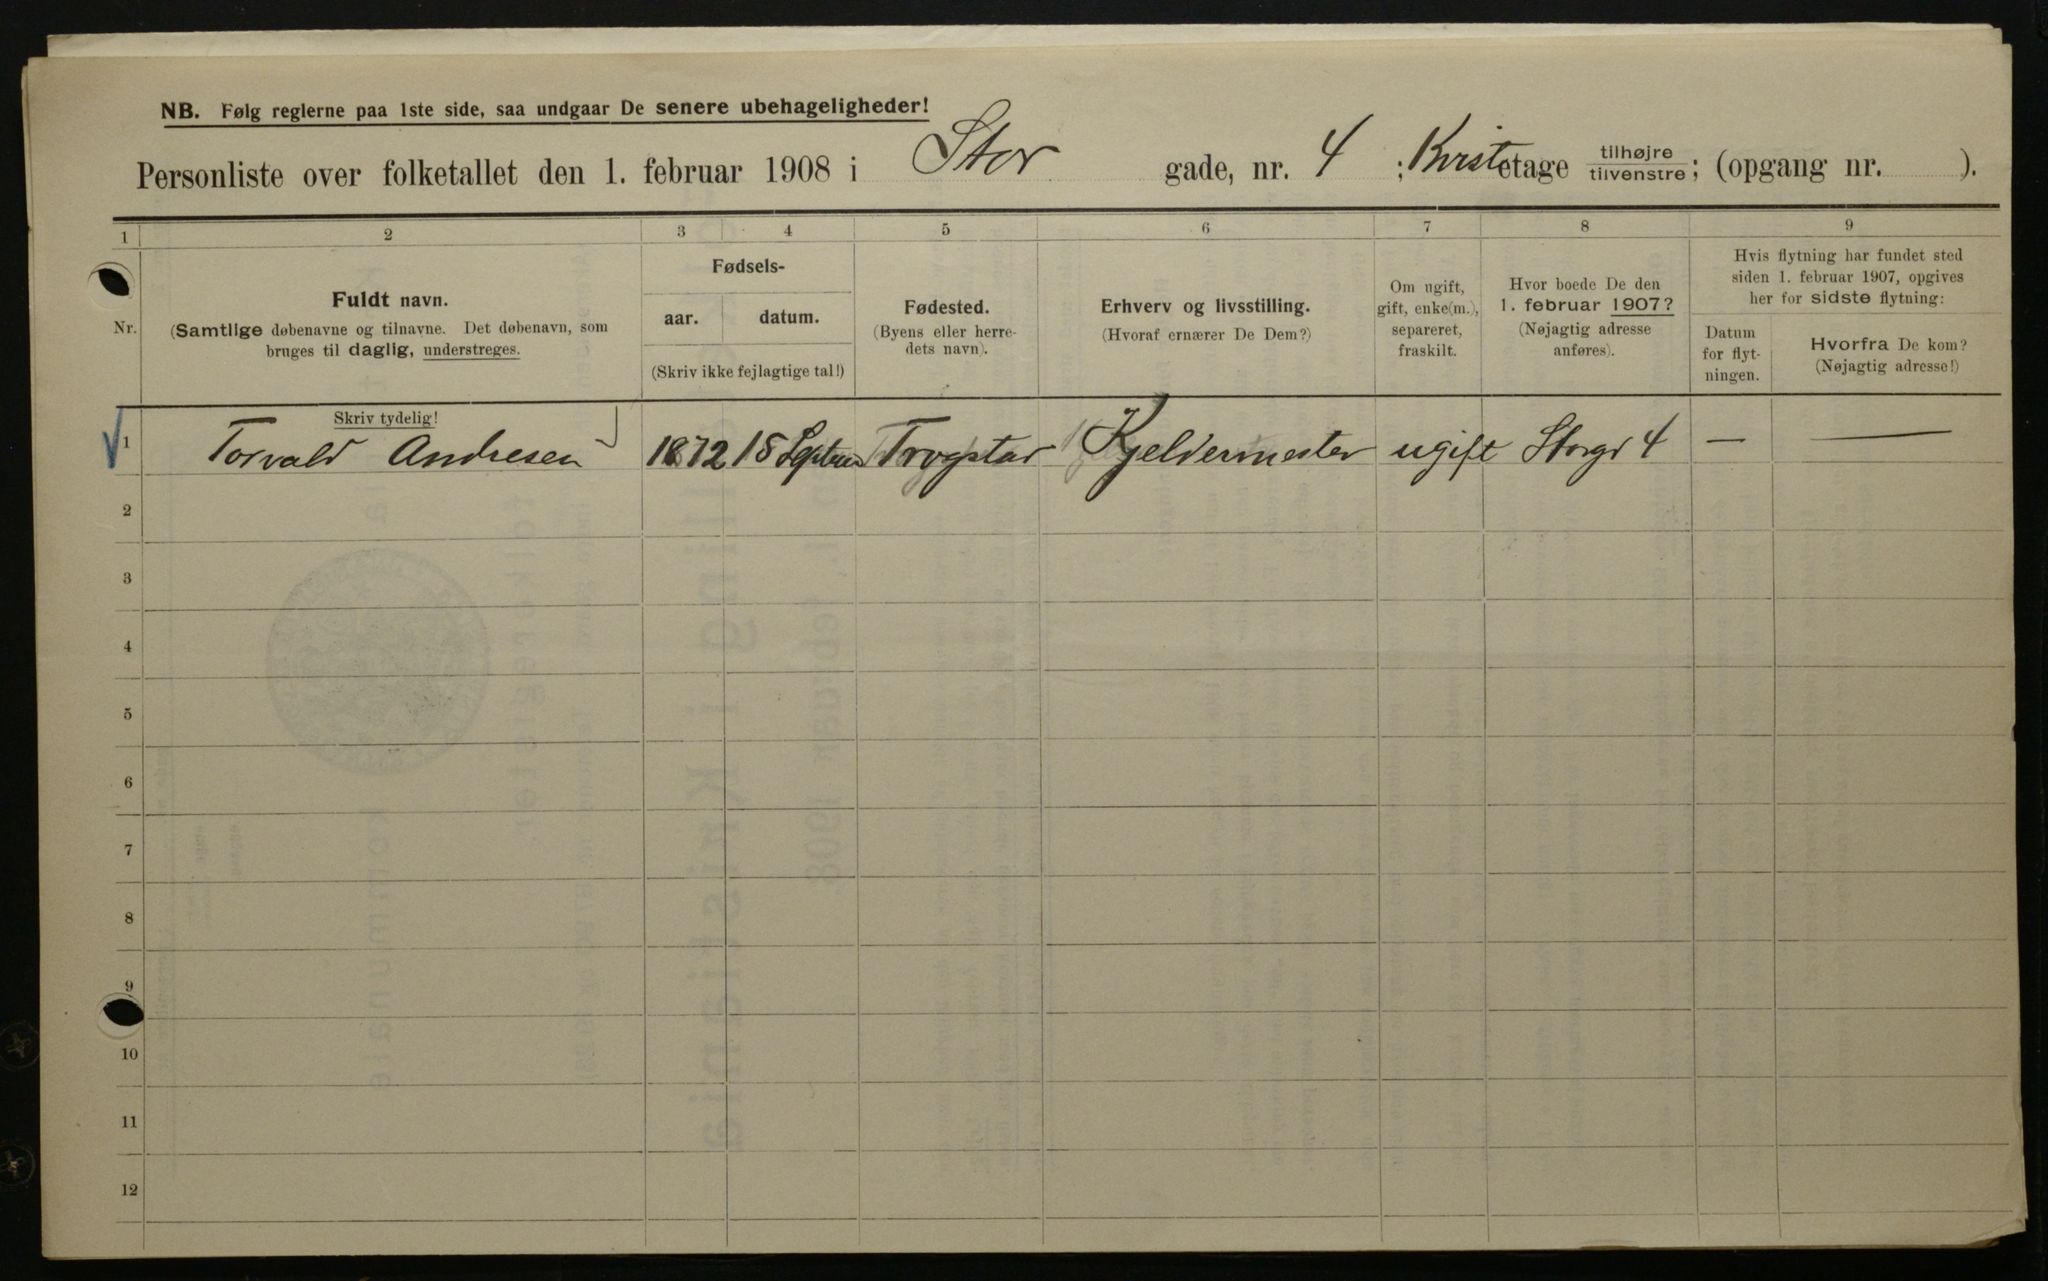 NB. Følg reglerne paa 1ste side, saa undgaar De senere ubehageligheder!
Personliste over folketallet den 1. februar 1908 i Stor gade, nr. 4 ; Kvist etage tilhøjre tilvenstre ; (opgang nr. ).
1 2 3 4 5 6 7 8 9
Nr.
Fuldt navn.
(Samtlige døbenavne og tilnavne. Det døbenavn, som
bruges til daglig, understreges.
Fødsels-
aar. datum.
(Skriv ikke fejlagtige tal!)
Fødested.
(Byens eller herre-
dets navn).
Erhverv og livsstilling.
(Hvoraf ernærer De Dem?)
Om ugift,
gift, enke(m.),
separeret,
fraskilt.
Hvor boede De den
1. februar 1907?
(Nøjagtig adresse
anføres).
Hvis flytning har fundet sted
siden 1. februar 1907, opgives
her for sidste flytning:
Datum
for flyt-
ningen.
Hvorfra De kom?
(Nøjagtig adresse!)
Skriv tydelig!
1 Torvald Andresen 1872 18 Trogstar Kjeldermester ugift Storgt 4 — —
2
3
4
5
6
7
8
9
10
11
12